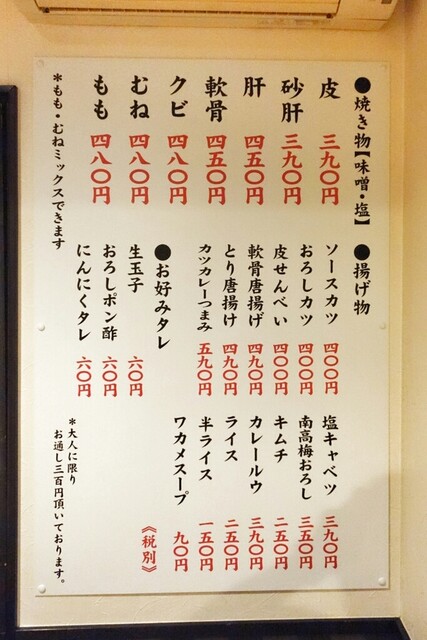 ●焼き物【味噌・塩】
皮 三九〇円
砂肝 三九〇円
肝 四五〇円
軟骨 四五〇円
クビ 四八〇円
むね 四八〇円
もも 四八〇円
＊もも・むねミックスできます
●揚げ物
ソースカツ 四〇〇円
おろしカツ 四〇〇円
皮せんべい 四〇〇円
軟骨唐揚げ 四九〇円
とり唐揚げ 四九〇円
カツカレーつまみ 五九〇円
●お好みタレ
生玉子 六〇円
おろしポン酢 六〇円
にんにくタレ 六〇円
塩キャベツ 三九〇円
南高梅おろし 三五〇円
キムチ 二五〇円
カレールウ 三九〇円
ライス 二五〇円
半ライス 一五〇円
ワカメスープ 九〇円
《税別》
＊大人に限り
お通し三百円頂いております。